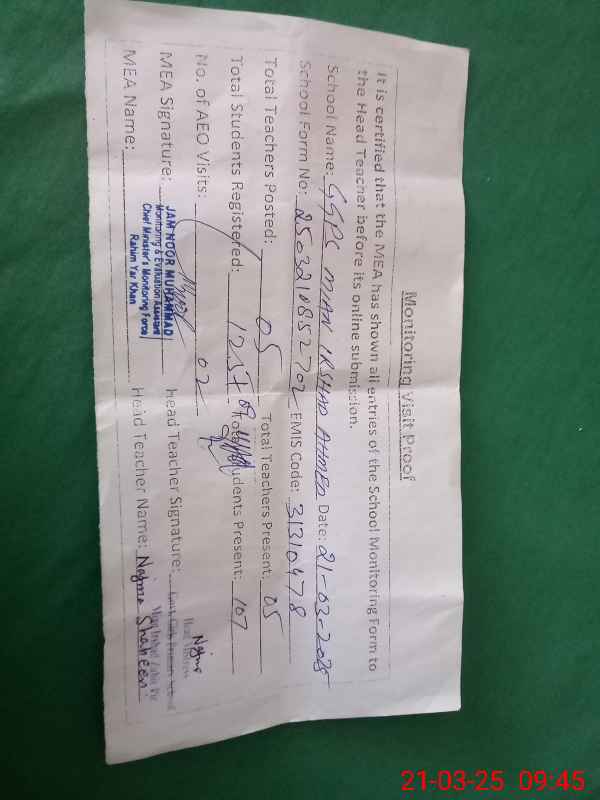 Monitoring Visit Proof
It is certified that the MEA has shown all entries of the School Monitoring Form to
the Head Teacher before its online submission.
School Name: GGPS MIAN IRSHAD AHMED Date: 21-03-2025
School Form No: 2503210852702 EMIS Code: 31310478
Total Teachers Posted: 05 Total Teachers Present: 05
Total Students Registered: Total Students Present: 107
No. of AEO Visits: 02
MEA Signature: head Teacher Signature:
JAM NOOR MUHAMMAD
Monitoring & Evaluation Assistant
Chief Minister's Monitoring Force
Rahim Yar Khan
Najma
Head Mistress
Govt. Girls Primary School
MEA Name: Head Teacher Name: Najma Shaheen
21-03-25 09:45